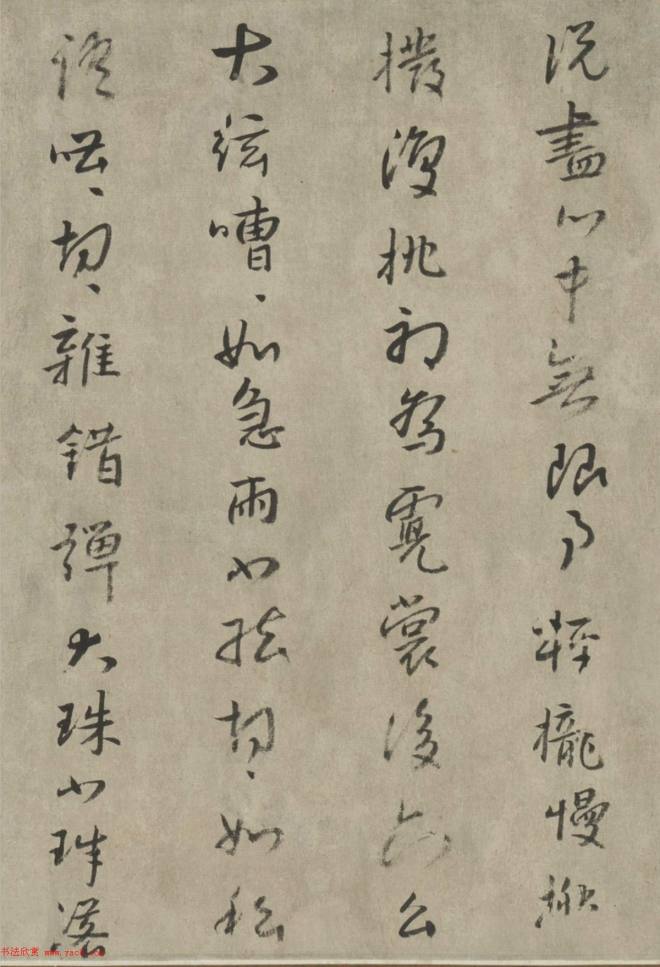 説盡心中無限事輕攏慢撚
撥復挑初為霓裳後六么
大絃嘈〻如急雨小絃切〻如私
語嘈〻切〻雜錯彈大珠小珠落
书法欣赏 www.yac8.com